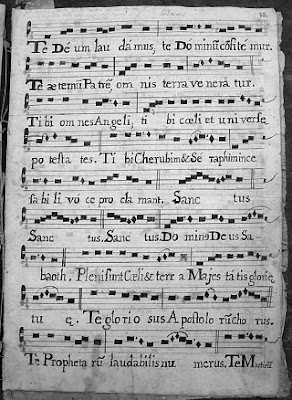 Te De um lau dá mus, te Dó minũ cõfité mur.
Te æ ternũ Pa trẽ om nis terra ve nerá tur.
Ti bi om nes Angeli, ti bi cœli et u ni verse
po testa tes. Ti bi Cherubim & Se raphim in ce
sa bi li vó ce pro cla mant. Sanc tus
Sanc tus. Sanc tus. Do minꝰ Deus Sa
baoth. Pleni sunt Cœli & terr a Majes tá tis glorię
tu ę. Te glorio sus Apostolo rũ cho rus.
Te Propheta rũ laudabilis nu merus. Te Martirũ